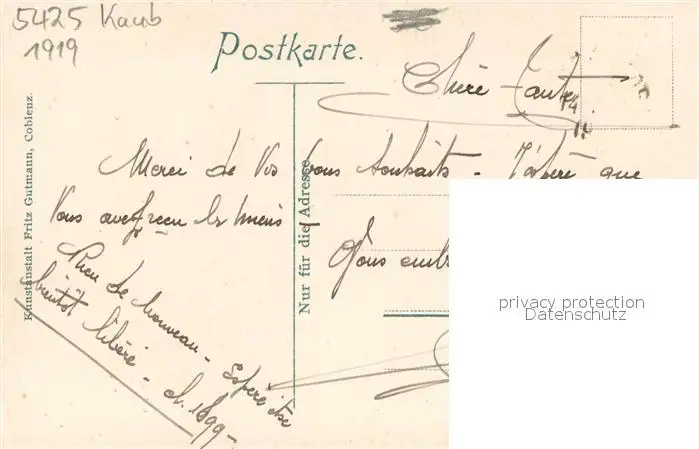 5425 Kaub
1919
Postkarte.
Chère Tante
Merci de Vos bons souhaits - J'espère que
Vous avez reçu les miens
Vous emb
Rien de nouveau - Espère être
bientôt libéré - cl. 1899 -
Nur für die Adresse
Kunstanstalt Fritz Gutmann, Coblenz.
privacy protection
Datenschutz